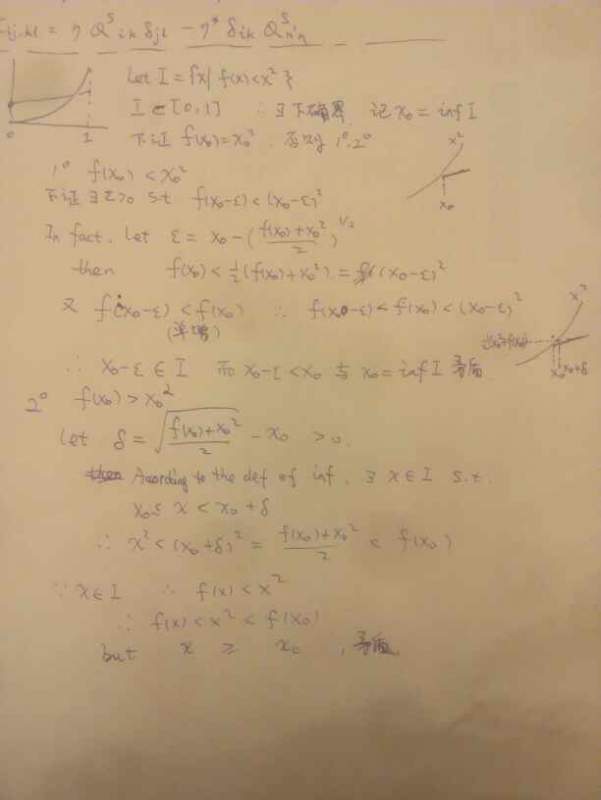 ij,kl = η Q^S_{ik} δ_{jl} - η* δ_{ik} Q^S
Let I = {x | f(x) < x²}
0 1
I ⊂ [0,1] ∴ ∃下确界 记 x₀ = inf I
下证 f(x₀) = x₀². 否则 1°. 2°
x²
x₀
1° f(x₀) < x₀²
下证 ∃ε>0 s.t f(x₀-ε) < (x₀-ε)²
In fact, let ε = x₀ - ((f(x₀)+x₀²)/2)^{1/2}
then f(x₀) < ½(f(x₀)+x₀²) = (x₀-ε)²
又 f(x₀-ε) < f(x₀) ∴ f(x₀-ε) < f(x₀) < (x₀-ε)²
(单增)
x²
x₀ x₀+δ
∴ x₀-ε ∈ I 而 x₀-ε < x₀ 与 x₀ = inf I 矛盾
2° f(x₀) > x₀²
Let δ = √((f(x₀)+x₀²)/2) - x₀ > 0.
then According to the def of inf, ∃ x ∈ I s.t.
x₀ ≤ x < x₀+δ
∴ x² < (x₀+δ)² = (f(x₀)+x₀²)/2 < f(x₀)
∵ x∈I ∴ f(x) < x²
∴ f(x) < x² < f(x₀)
but x ≥ x₀ , 矛盾